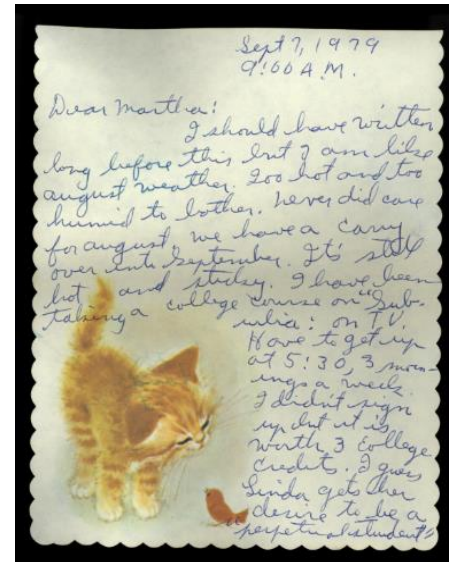 Sept 7, 1979
9:00 A.M.
Dear Martha:
I should have written
long before this but I am like
august weather, too hot and too
humid to bother. never did care
for august, we have a carry
over into September. It's still
hot and sticky. I have been
taking a college course on "Sub-
urbia: on T.V.
Have to get up
at 5:30, 3 morn-
ings a week.
I didn't sign
up but it is
worth 3 College
credits. I guess
Linda gets her
desire to be a
"perpetual student"